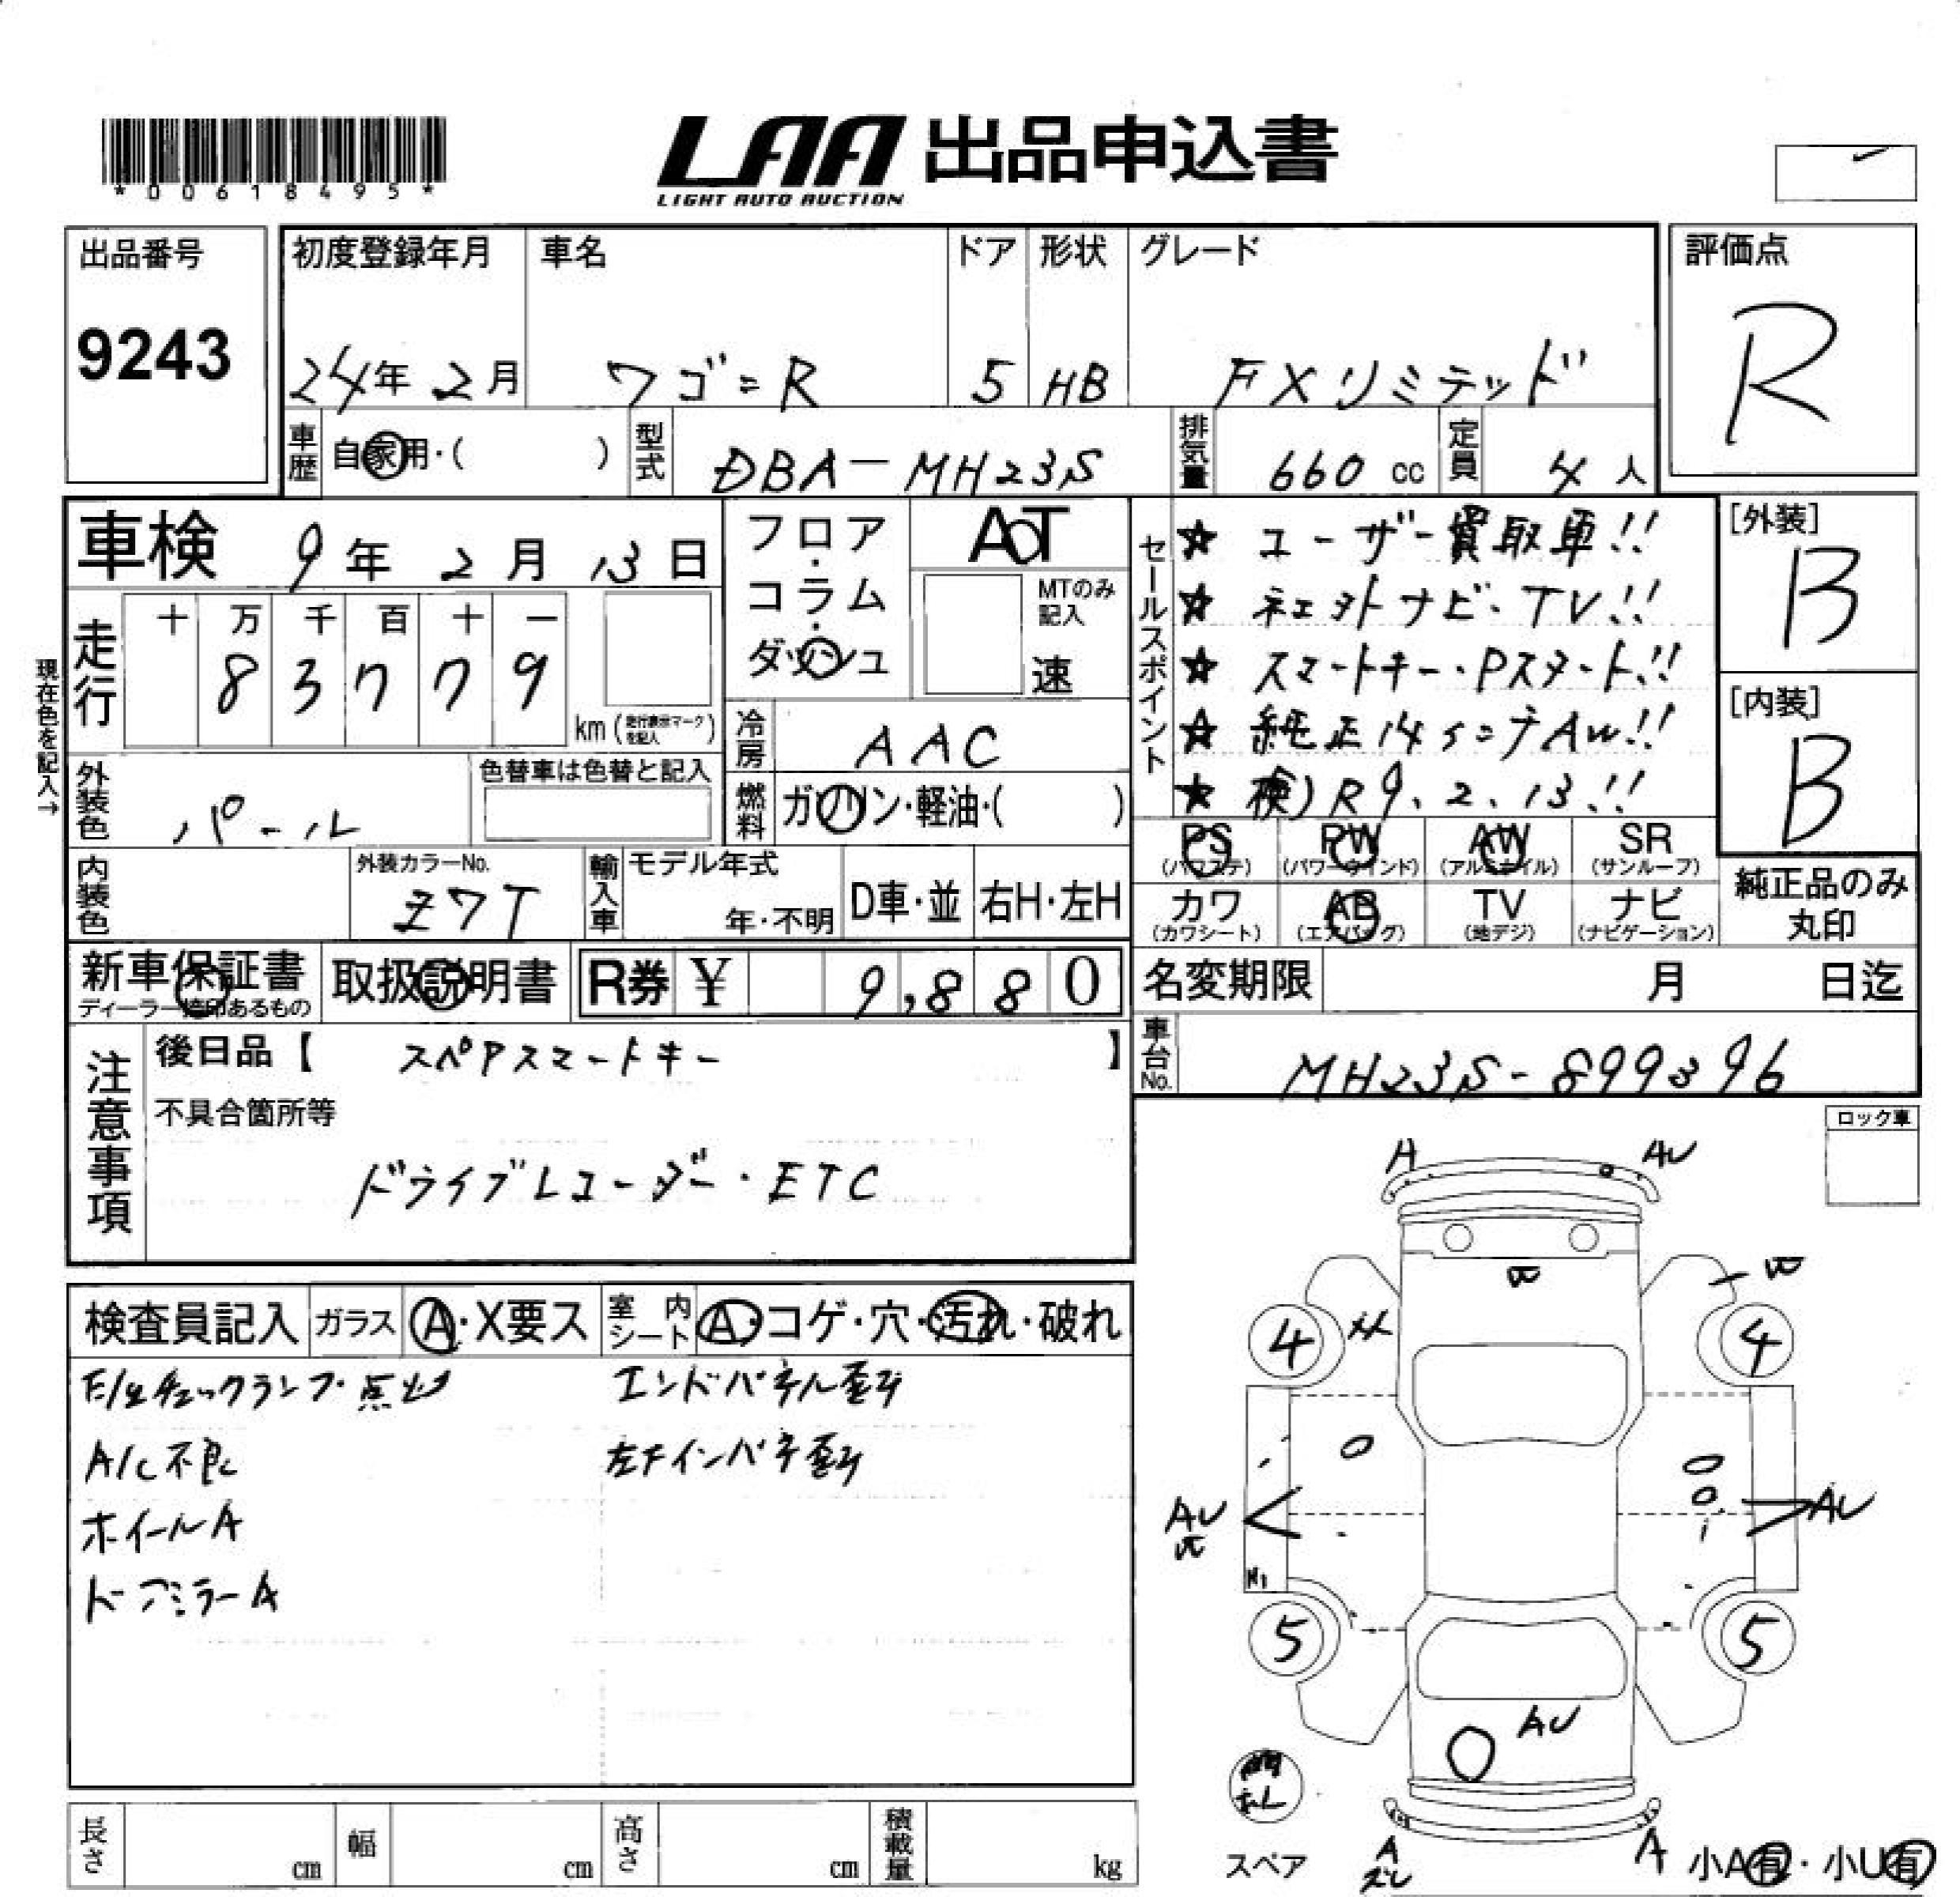 *00618495*
LAA 出品申込書
LIGHT AUTO AUCTION
出品番号
9243
初度登録年月
24年 2月
車名
ワゴンR
ドア
5
形状
HB
グレード
FXリミテッド
評価点
R
車歴 自家用・( )
型式 DBA-MH23S
排気量 660 cc
定員 4人
車検 9年 2月 13日
フロア・コラム・ダッシュ
AT
MTのみ記入
速
走行
十 万 千 百 十 一
8 3 7 7 9
km (走行表示マークを記入)
現在色を記入→
冷房 AAC
燃料 ガソリン・軽油・( )
外装色 パール
色替車は色替と記入
内装色
外装カラーNo.
Z7T
輸入車
モデル年式
年・不明
D車・並
右H・左H
セールスポイント
☆ ユーザー買取車!!
☆ 社外ナビ・TV!!
☆ スマートキー・Pスタート!!
☆ 純正14インチAW!!
★ 検)R9.2.13!!
[外装]
B
[内装]
B
PS (パワステ)
PW (パワーウインド)
AW (アルミホイル)
SR (サンルーフ)
カワ (カワシート)
AB (エアバッグ)
TV (地デジ)
ナビ (ナビゲーション)
純正品のみ丸印
新車保証書
取扱説明書
R券 ¥ 9,880
名変期限 月 日迄
車台No. MH23S-899396
注意事項
後日品【 スペアスマートキー 】
不具合箇所等
ドライブレコーダー・ETC
ロック車
検査員記入
ガラス A・X要ス
室内シート A・コゲ・穴・汚れ・破れ
E/gチェックランプ・点灯
A/C不良
ホイールA
ドアミラーA
エンドパネル歪み
左Fインパネ歪み
A
AU
4
4
AU
AU
5
5
AU
スペア
A
A
小A有・小U有
長さ cm
幅 cm
高さ cm
積載量 kg